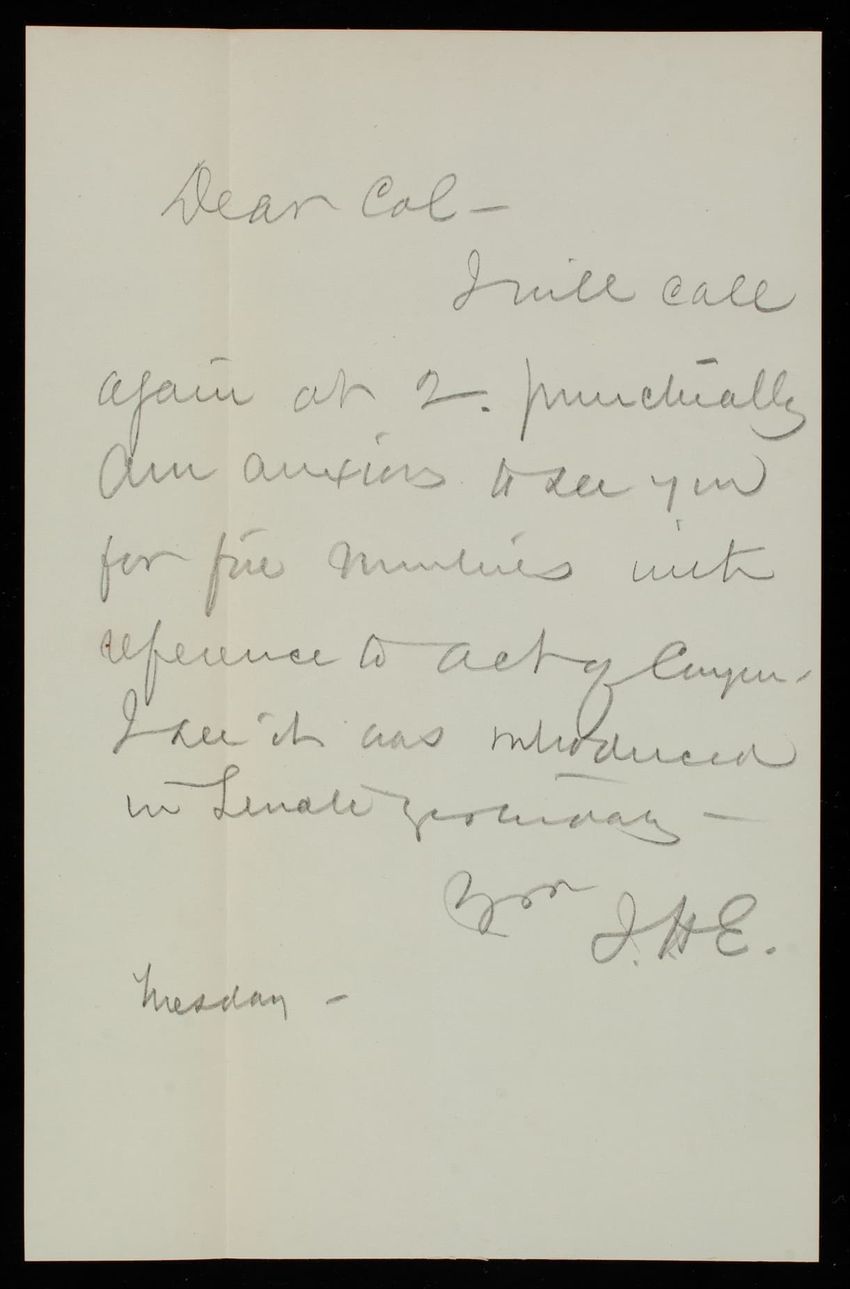 Dear Col –
I will call
again at 2. punctually
Am anxious to see you
for five minutes with
reference to act of Congress.
I see it was introduced
in Senate yesterday –
Yrs J. H E.
Tuesday –